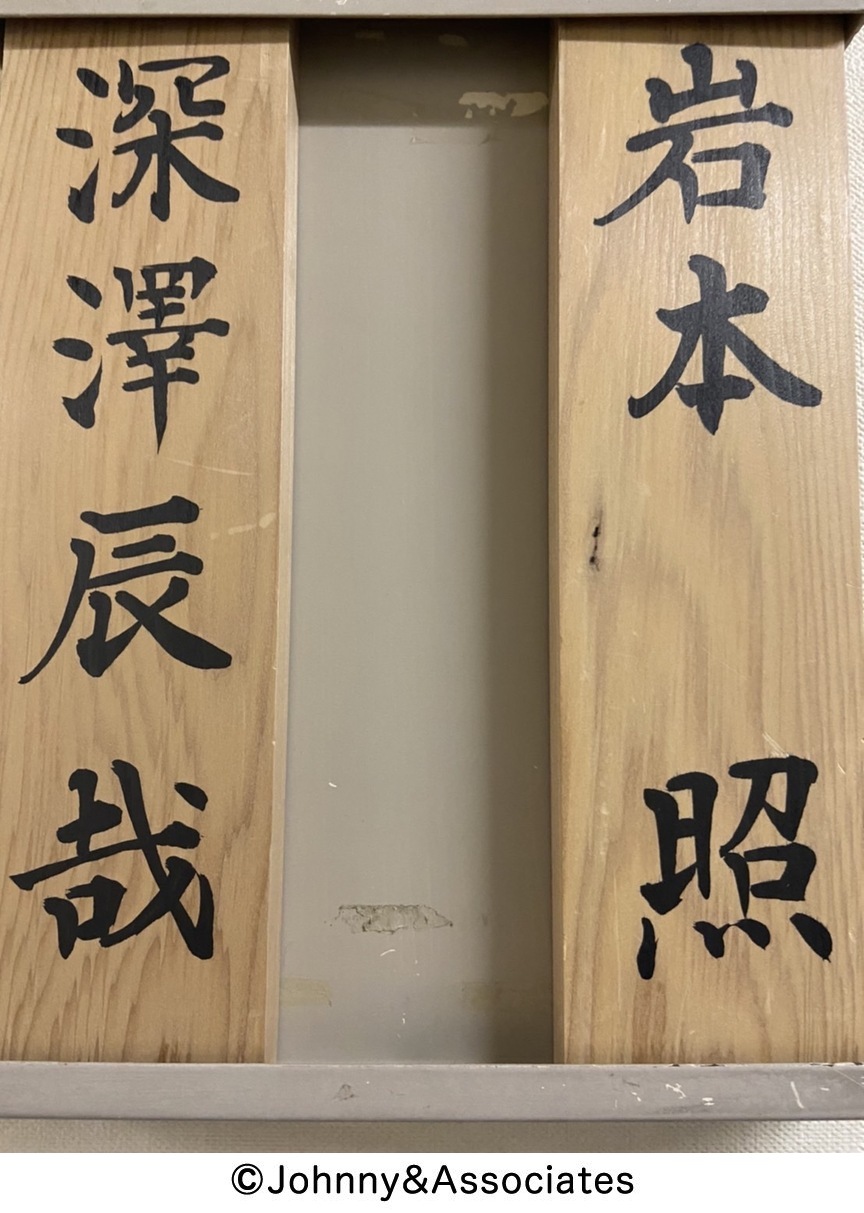 岩本 照
深澤辰哉
©Johnny&Associates